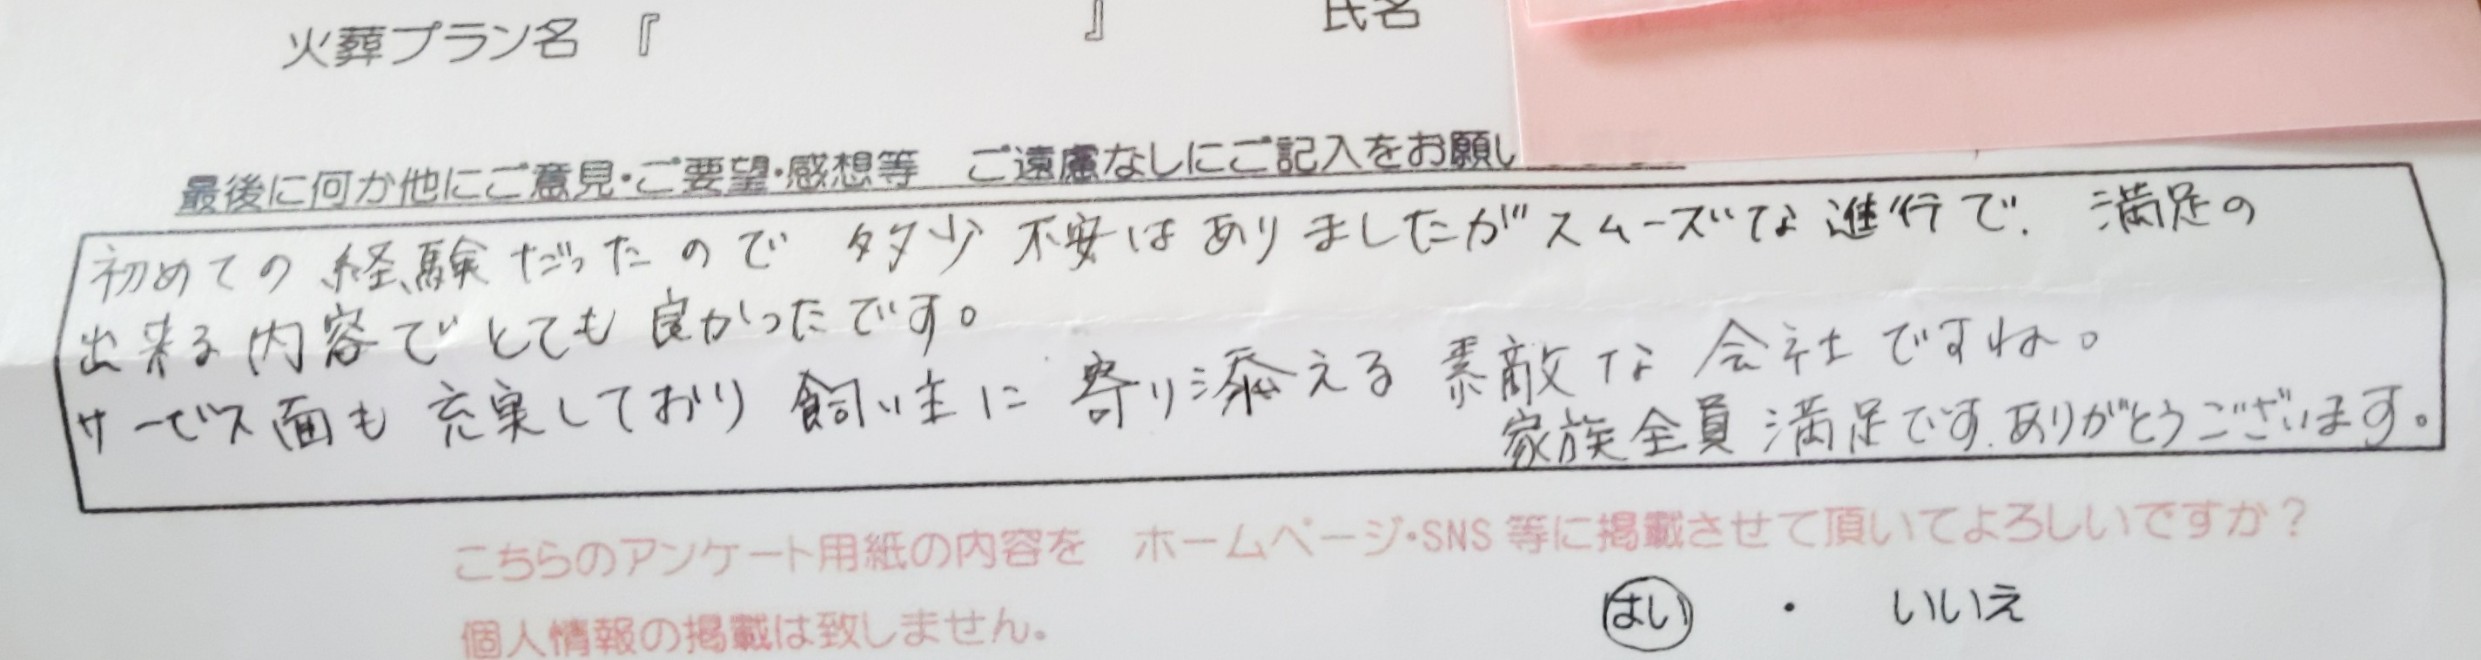 火葬プラン名 『 』 氏名
最後に何か他にご意見・ご要望・感想等 ご遠慮なしにご記入をお願い
初めての経験だったので 多少 不安はありましたがスムーズな進行で、満足の
出来る内容でとても良かったです。
サービス面も充実しており飼い主に寄り添える素敵な会社ですね。
家族全員満足です。ありがとうございます。
こちらのアンケート用紙の内容を ホームページ・SNS 等に掲載させて頂いてよろしいですか？
はい ・ いいえ
個人情報の掲載は致しません。